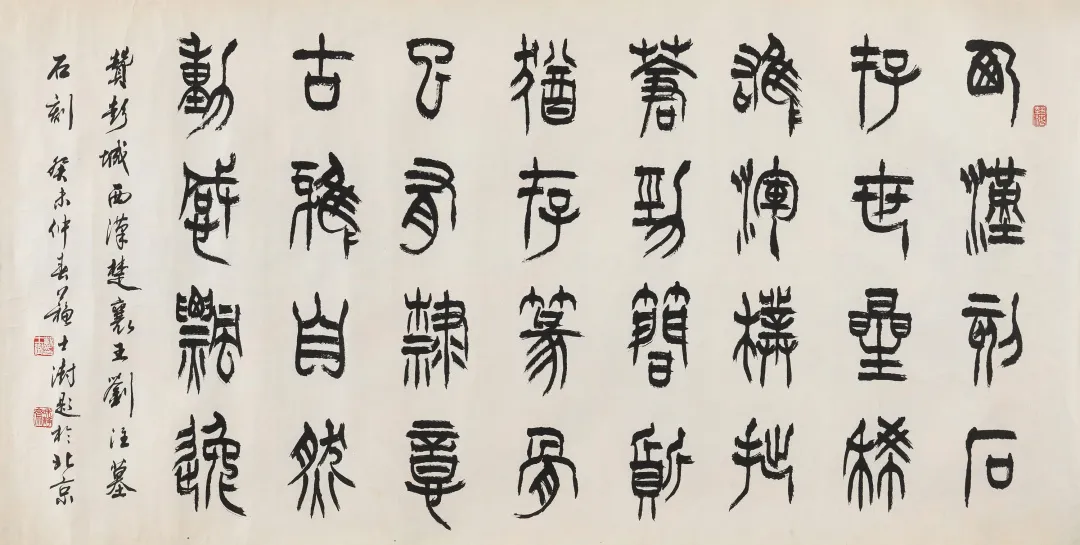 西漢刻石
存世量稀
雄渾樸拙
蒼勁簡質
猶存篆骨
已有隸意
古雅自然
動感飄逸
贊彭城西漢楚襄王劉注墓
石刻 癸未仲春蘇士澍題於北京